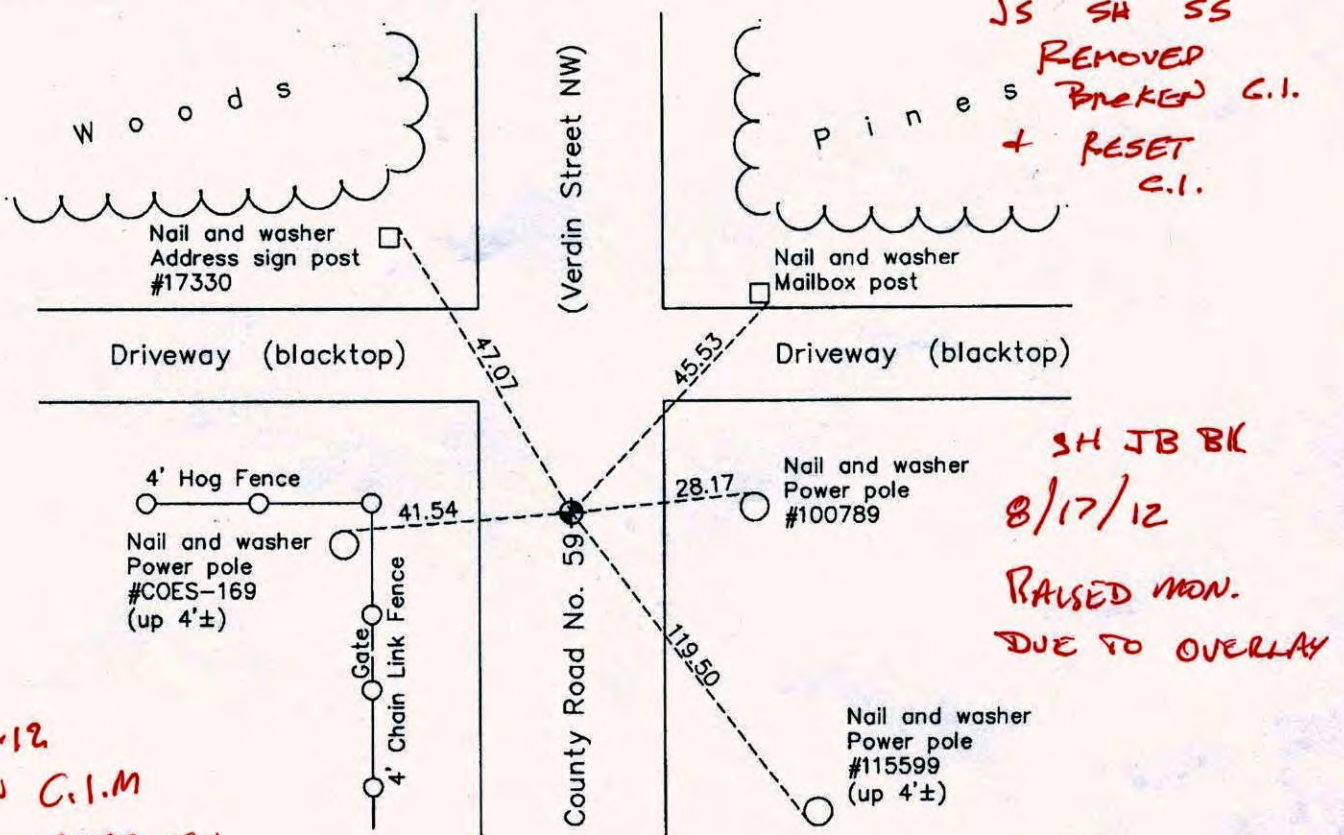 JS SH SS
REMOVED
BROKEN C.I.
+ RESET
C.I.
Woods
Pines
(Verdin Street NW)
Nail and washer
Address sign post
#17330
Nail and washer
Mailbox post
Driveway (blacktop)
47.07
45.53
Driveway (blacktop)
4' Hog Fence
41.54
28.17
Nail and washer
Power pole
#100789
SH JB BK
8/17/12
RAISED MON.
DUE TO OVERLAY
Nail and washer
Power pole
#COES-169
(up 4'±)
Gate
4' Chain Link Fence
County Road No. 59
119.50
Nail and washer
Power pole
#115599
(up 4'±)
12
C.I.M